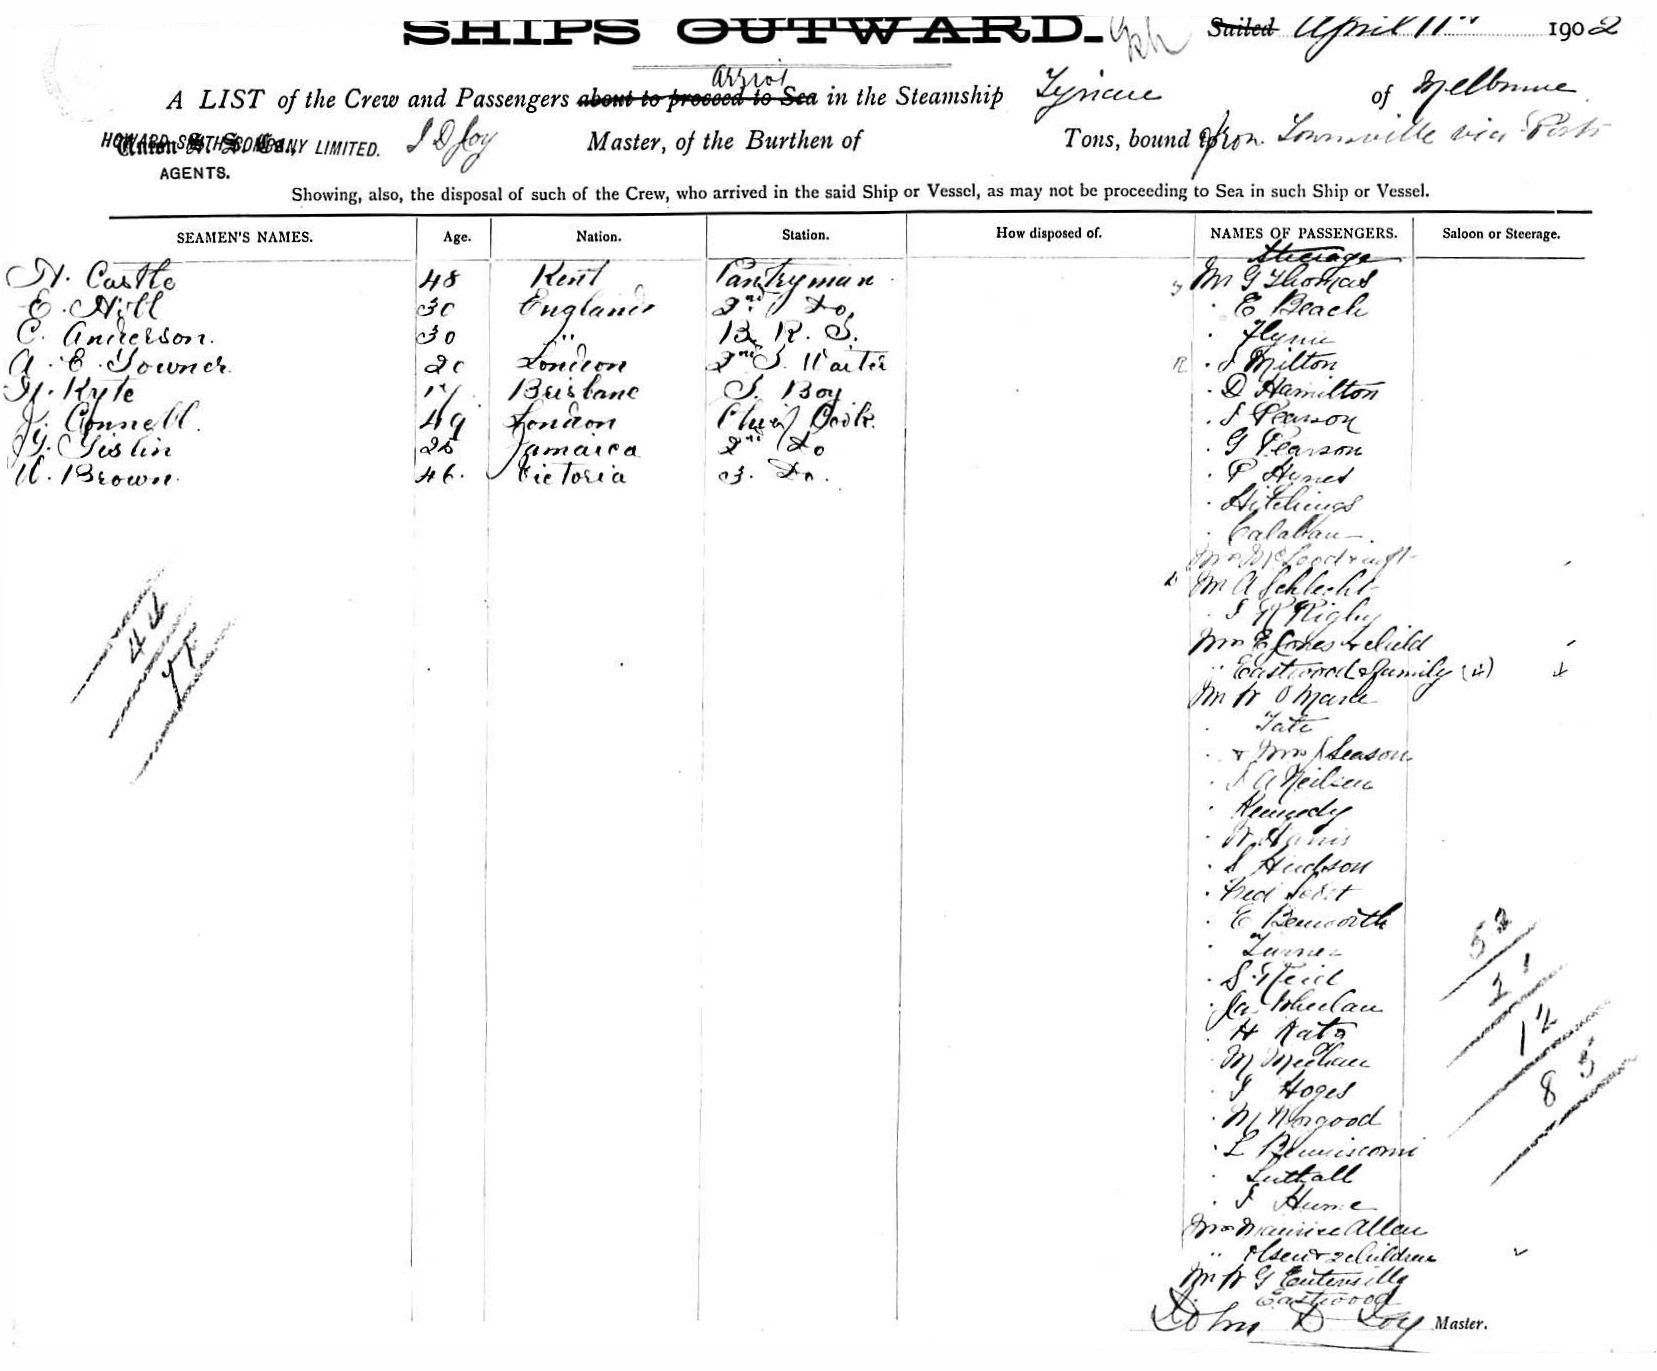 SHIPS OUTWARD.
Sailed April 11th 1902
A LIST of the Crew and Passengers about to proceed to Sea in the Steamship Tyrian of Melbourne
HOWARD SMITH COMPANY LIMITED.
AGENTS.
J D Joy Master, of the Burthen of Tons, bound from Townsville via Ports
Showing, also, the disposal of such of the Crew, who arrived in the said Ship or Vessel, as may not be proceeding to Sea in such Ship or Vessel.
SEAMEN'S NAMES. Age. Nation. Station. How disposed of. NAMES OF PASSENGERS. Saloon or Steerage.
Steerage
Castle 48 Kent Pantryman
E. Hill 30 England 2nd Do
C. Anderson. 30 " B. R. S.
A. E. Towner 20 London 2nd S. Waiter
Kyte 17 Brisbane S. Boy
J. Connell. 49 London Chief Cook.
Gislin 25 Jamaica 2nd Do
W. Brown. 46. Victoria 3. Do.
Mr G Thomas
E Beach
Flynn
J Milton
D Hamilton
J Pearson
G Pearson
P Hynes
Hitchings
Calahan
Mrs
Mr A Schlecht
J R Rigby
Mrs E Jones & child
" Eastwood & family (4) 4
Mr W O'Mara
Tate
& Mrs J Season
J A Neilsen
Kennedy
W. Harris
S Hudson
Fred
E Benworth
Turner
S. Reid
Jas Whelan
H Katz
M Meehan
J Hoges
M Norgood
L
Luttall
J Hume
Mrs Maurice Allen
" Olsen & 2 children
Mr W G
Eastwood
44
52
21
12
85
John D Joy Master.